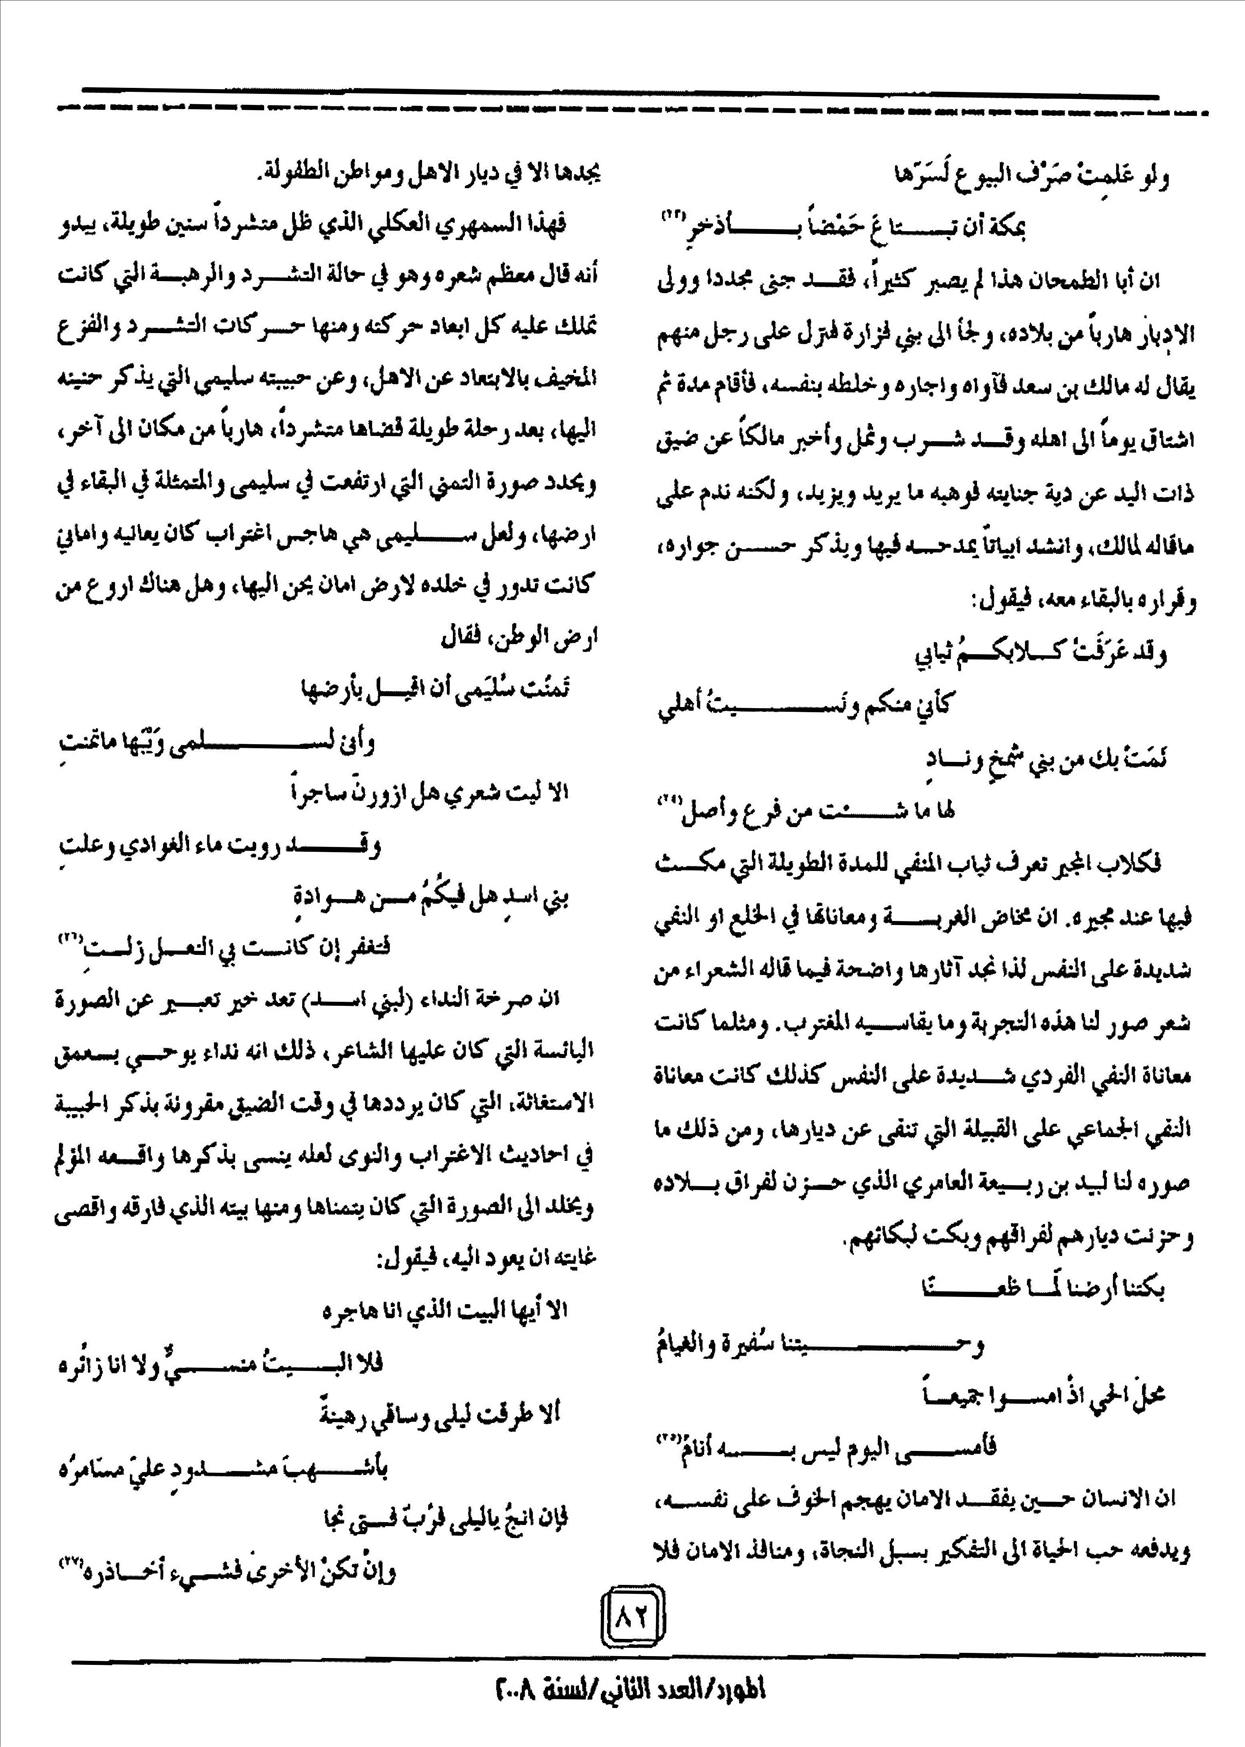 ولو عَلمِتْ صَرْف البيوع لَسَرّها
بمكة أن تبـــتاعَ حَمْضاً بـــأذخرِ(٢٣)
ان أبا الطمحان هذا لم يصبر كثيراً، فقـد جنى مجددا وولى
الادبار هارباً من بلاده، ولجأ الى بني فزارة فنزل على رجل منهم
يقال له مالك بن سعد فآواه واجاره وخلطه بنفسه، فأقام مدة ثم
اشتاق يوماً الى اهله وقـد شـرب وثمل وأخبر مالكاً عن ضيق
ذات اليد عن دية جنايته فوهبه ما يريد ويزيد، ولكنه ندم على
ماقاله لمالك، وانشد ابياتاً يمدحـه فيها ويذكر حسـن جواره،
وقراره بالبقاء معه، فيقول:
وقد عَرَفَتْ كـلابكـمُ ثيابي
كأني منكم ونَســـيتُ أهلي
نَمَتْ بك من بني شمخٍ ونـادِ
لها ما شـــئت من فرع وأصل(٢٤)
فكلاب المجير تعرف ثياب المنفي للمدة الطويلة التي مكـث
فيها عند مجيره. ان مخاض الغربـة ومعاناتها في الخلع او النفي
شديدة على النفس لذا نجد آثارها واضحة فيما قاله الشعراء من
شعر صور لنا هذه التجربة وما يقاسيه المغترب. ومثلما كانت
معاناة النفي الفردي شـديدة على النفس كذلك كانت معاناة
النفي الجماعي على القبيلة التي تنفى عن ديارها، ومن ذلك ما
صوره لنا لبيد بن ربـيعة العامري الذي حـزن لفراق بـلاده
وحزنت ديارهم لفراقهم وبكت لبكائهم.
بكتنا أرضنا لمّـا ظعـــنّا
وحـــــيتنا سُفيرة والغيامُ
محلّ الحي اذْ امسـوا جميعـاً
فأمســى اليوم ليس بـــه أنامُ(٢٥)
ان الانسان حـين يفقـد الامان يهجم الخوف على نفسـه،
ويدفعه حب الحياة الى التفكير بسبل النجاة، ومنافذ الامان فلا
يجدها الا في ديار الاهل ومواطن الطفولة.
فهذا السمهري العكلي الذي ظل متشرداً سنين طويلة، يبدو
أنه قال معظم شعره وهو في حالة التشرد والرهبـة التي كانت
تملك عليه كل ابعاد حركته ومنها حـركات التشـرد والفزع
المخيف بالابتعاد عن الاهل، وعن حبيبته سليمى التي يذكر حنينه
اليها، بعد رحلة طويلة قضاها متشرداً، هارباً من مكان الى آخر،
ويحدد صورة التمني التي ارتفعت في سليمى والمتمثلة في البقاء في
ارضها، ولعل ســليمى هي هاجس اغتراب كان يعانيه واماني
كانت تدور في خلده لارض امان يحن اليها، وهل هناك اروع من
ارض الوطن، فقال
تَمنّت سُليَمى أن اقيـل بأرضها
وأنى لســـلمى وَيْبَها ماتمنتِ
الا ليت شعري هل ازورنّ ساجراً
وقـــد رويت ماء الغوادي وعلتِ
بني اسدِ هل فيكُمُ مـن هـوادةٍ
فتغفر إن كانـت بي النعـل زلـتِ(٢٦)
ان صرخة النداء (لبني اسـد) تعد خير تعبـير عن الصورة
البائسة التي كان عليها الشاعر، ذلك انه نداء يوحـي بـعمق
الاستغاثة، التي كان يرددها في وقت الضيق مقرونة بذكر الحبيبة
في احاديث الاغتراب والنوى لعله ينسى بذكرها واقـعه المؤلم
ويخلد الى الصورة التي كان يتمناها ومنها بيته الذي فارقه واقصى
غايته ان يعود اليه، فيقول:
الا أيها البيت الذي انا هاجره
فلا البـيتُ منســيٌّ ولا انا زائُره
ألا طرقت ليلى وساقي رهينةٌ
بأشـهبَ مشـدودِ عليّ مسَامرُه
فإن انجُ ياليلى فرُبّ فـتى نجا
وإنْ تكنْ الأخرىَ فشـيء أحـاذره(٢٧)
٨٢
المورد/العدد الثاني/لسنة ٢٠٠٨